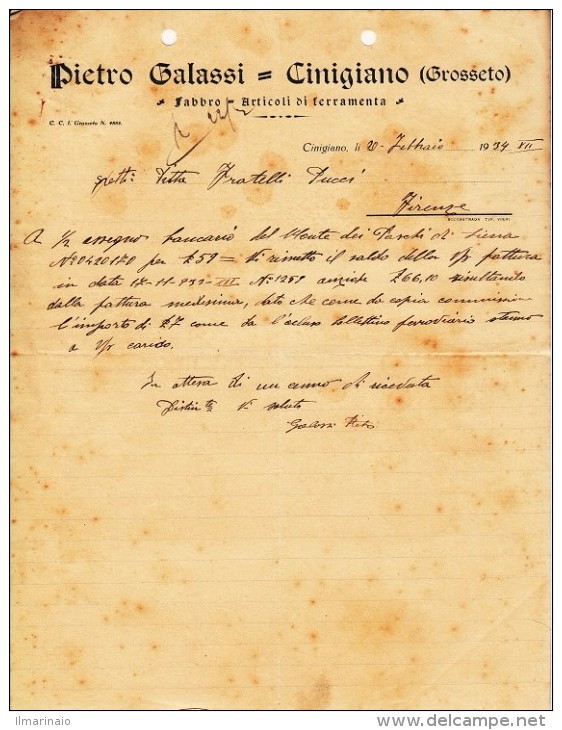 Pietro Galassi = Cinigiano (Grosseto)
Fabbro - Articoli di ferramenta
C. C. I. Grosseto N. 4888.
Cinigiano, li 20 - Febbraio 1934 XII
Ditta Fratelli Pucci
Firenze
ROCCASTRADA TIP. VIERI
A 1/2 assegno bancario del Monte dei Paschi di Siena
per £ 59 = Vi rimetto il saldo della V/ fattura
in data N° 1259 anziché £ 66,10 risultante
dalla fattura medesima, dato che come da copia commissione
l'importo di £ 7 come da l'accluso bollettino ferroviario stanno
a V/ carico.
In attesa di un cenno di ricevuta
Distin.te Vi saluto
Galassi Pietro
Ilmarinaio
delcampe.net